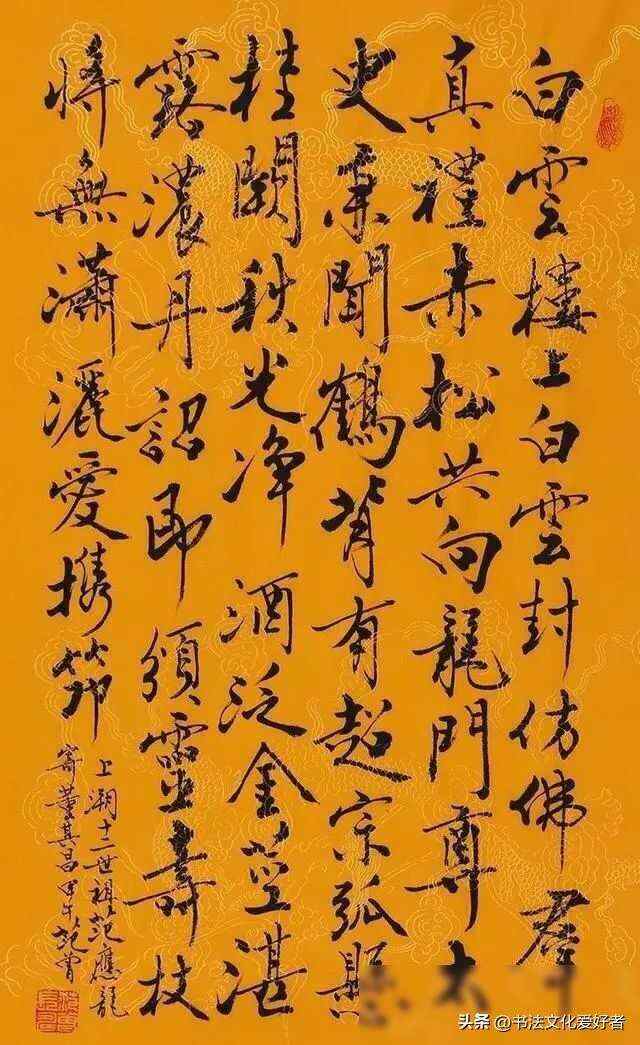 白雲樓上白雲封仿佛羣
真赤松共向龍門尊太
史果聞鶴背有超宗弧懸
桂闕秋光净酒泛金莖湛
露濃丹詔即頒靈壽杖
將無瀟灑愛攜筇
上溯十二世祖范應龍
寄董其昌甲午范曾
头条 @书法文化爱好者